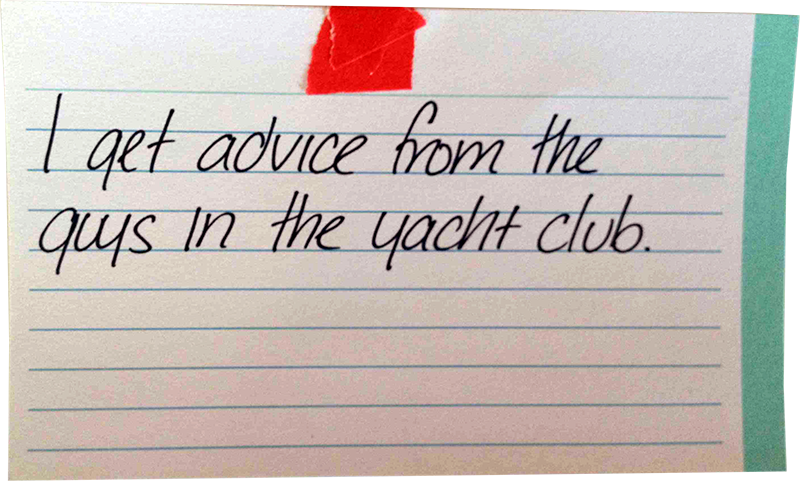 I get advice from the
guys in the yacht club.